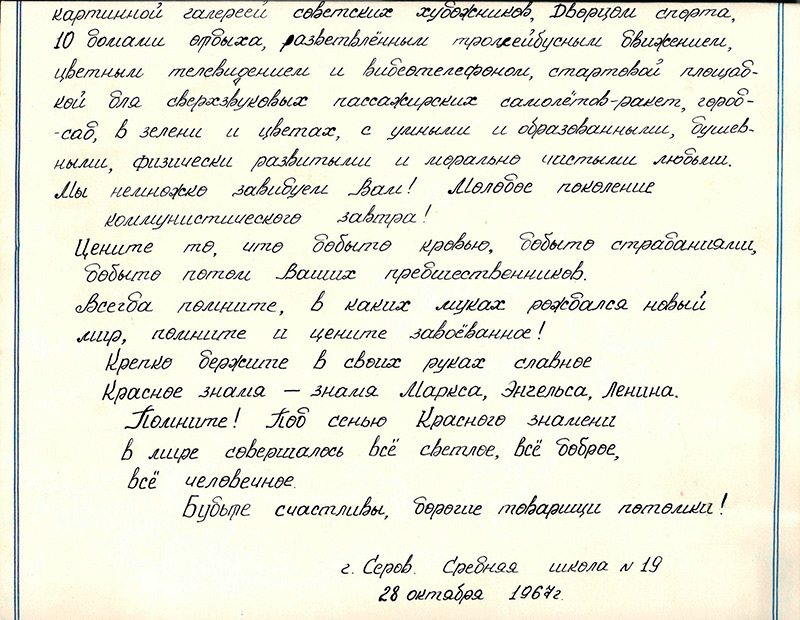 картинной галереей советских художников, Дворцом спорта,
10 домами отдыха, разветвлённым троллейбусным движением,
цветным телевидением и видеотелефоном, стартовой площад-
кой для сверхзвуковых пассажирских самолётов-ракет, город-
-сад, в зелени и цветах, с умными и образованными, душев-
ными, физически развитыми и морально чистыми людьми.
Мы немножко завидуем Вам! Молодое поколение
коммунистического завтра!
Цените то, что добыто кровью, добыто страданиями,
добыто потом Ваших предшественников.
Всегда помните, в каких муках рождался новый
мир, помните и цените завоёванное!
Крепко бержите в своих руках славное
Красное знамя — знамя Маркса, Энгельса, Ленина.
Помните! Под сенью Красного знамени
в мире совершалось всё светлое, всё доброе,
всё человечное.
Будьте счастливы, дорогие товарищи потомки!
г. Серов. Средняя школа N 19
28 октября 1967г.